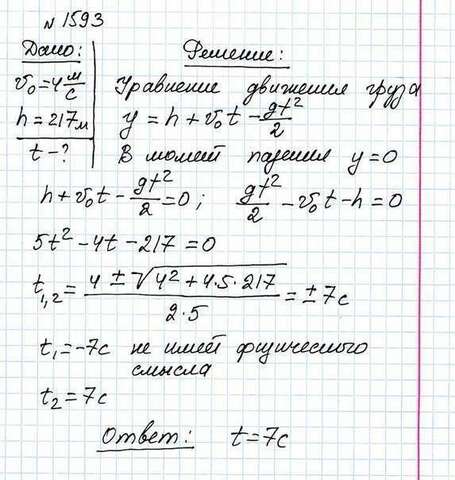 N 1593
Дано:
v₀ = 4 м/с
h = 217 м
t - ?
Решение:
Уравнение движения груза
y = h + v₀t - gt²/2
В момент падения y = 0
h + v₀t - gt²/2 = 0; gt²/2 - v₀t - h = 0
5t² - 4t - 217 = 0
t₁,₂ = (4 ± √(4² + 4·5·217))/(2·5) = ± 7с
t₁ = -7с не имеет физического
смысла
t₂ = 7с
Ответ: t = 7с